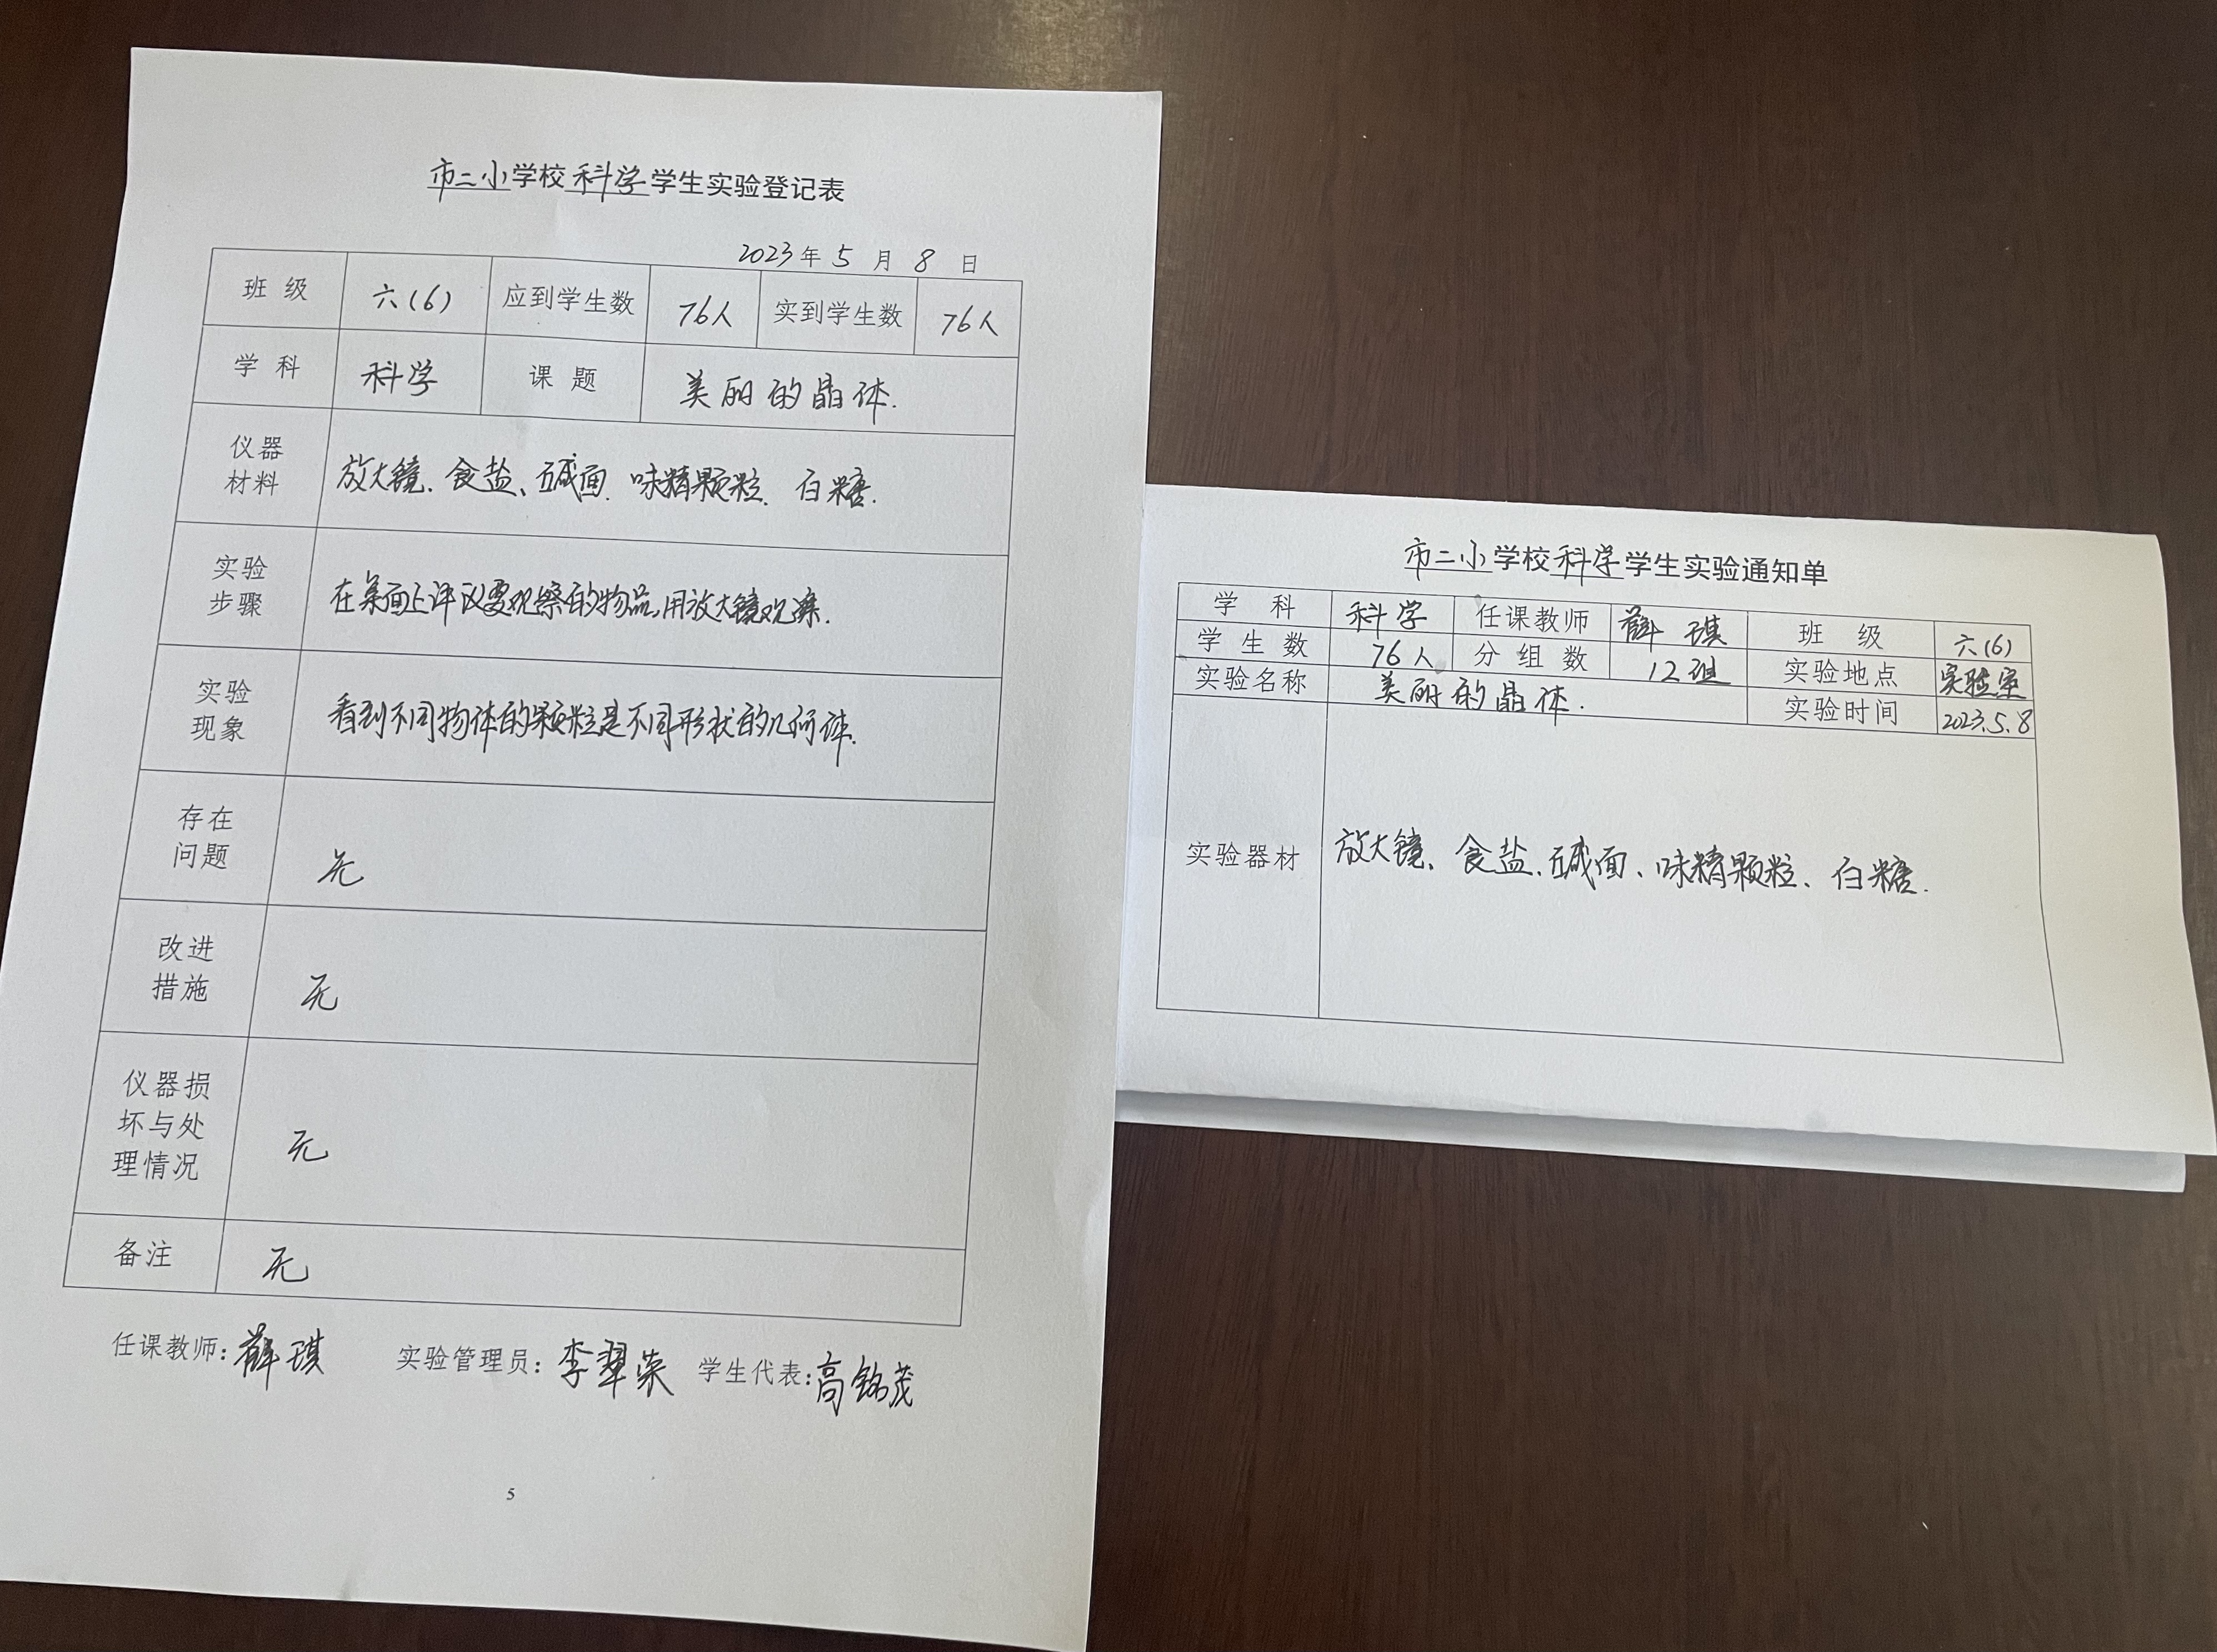 市二小学校科学学生实验登记表
2023年 5 月 8 日
班 级 六(6) 应到学生数 76人 实到学生数 76人
学 科 科学 课 题 美丽的晶体.
仪器
材料
放大镜、食盐、碱面、味精颗粒、白糖.
实验
步骤
在桌面上 要观察的物品,用放大镜观察.
实验
现象
看到不同物体的颗粒是不同形状的几何体.
存在
问题
无
改进
措施
无
仪器损
坏与处
理情况
无
备注 无
任课教师:薛琪 实验管理员:李翠荣 学生代表:高铭茂
5
市二小学校科学学生实验通知单
学 科 科学 任课教师 薛 琪 班 级 六(6)
学 生 数 76人 分 组 数 12组 实验地点 实验室
实验名称 美丽的晶体. 实验时间 2023.5.8
实验器材 放大镜、食盐、碱面、味精颗粒、白糖.